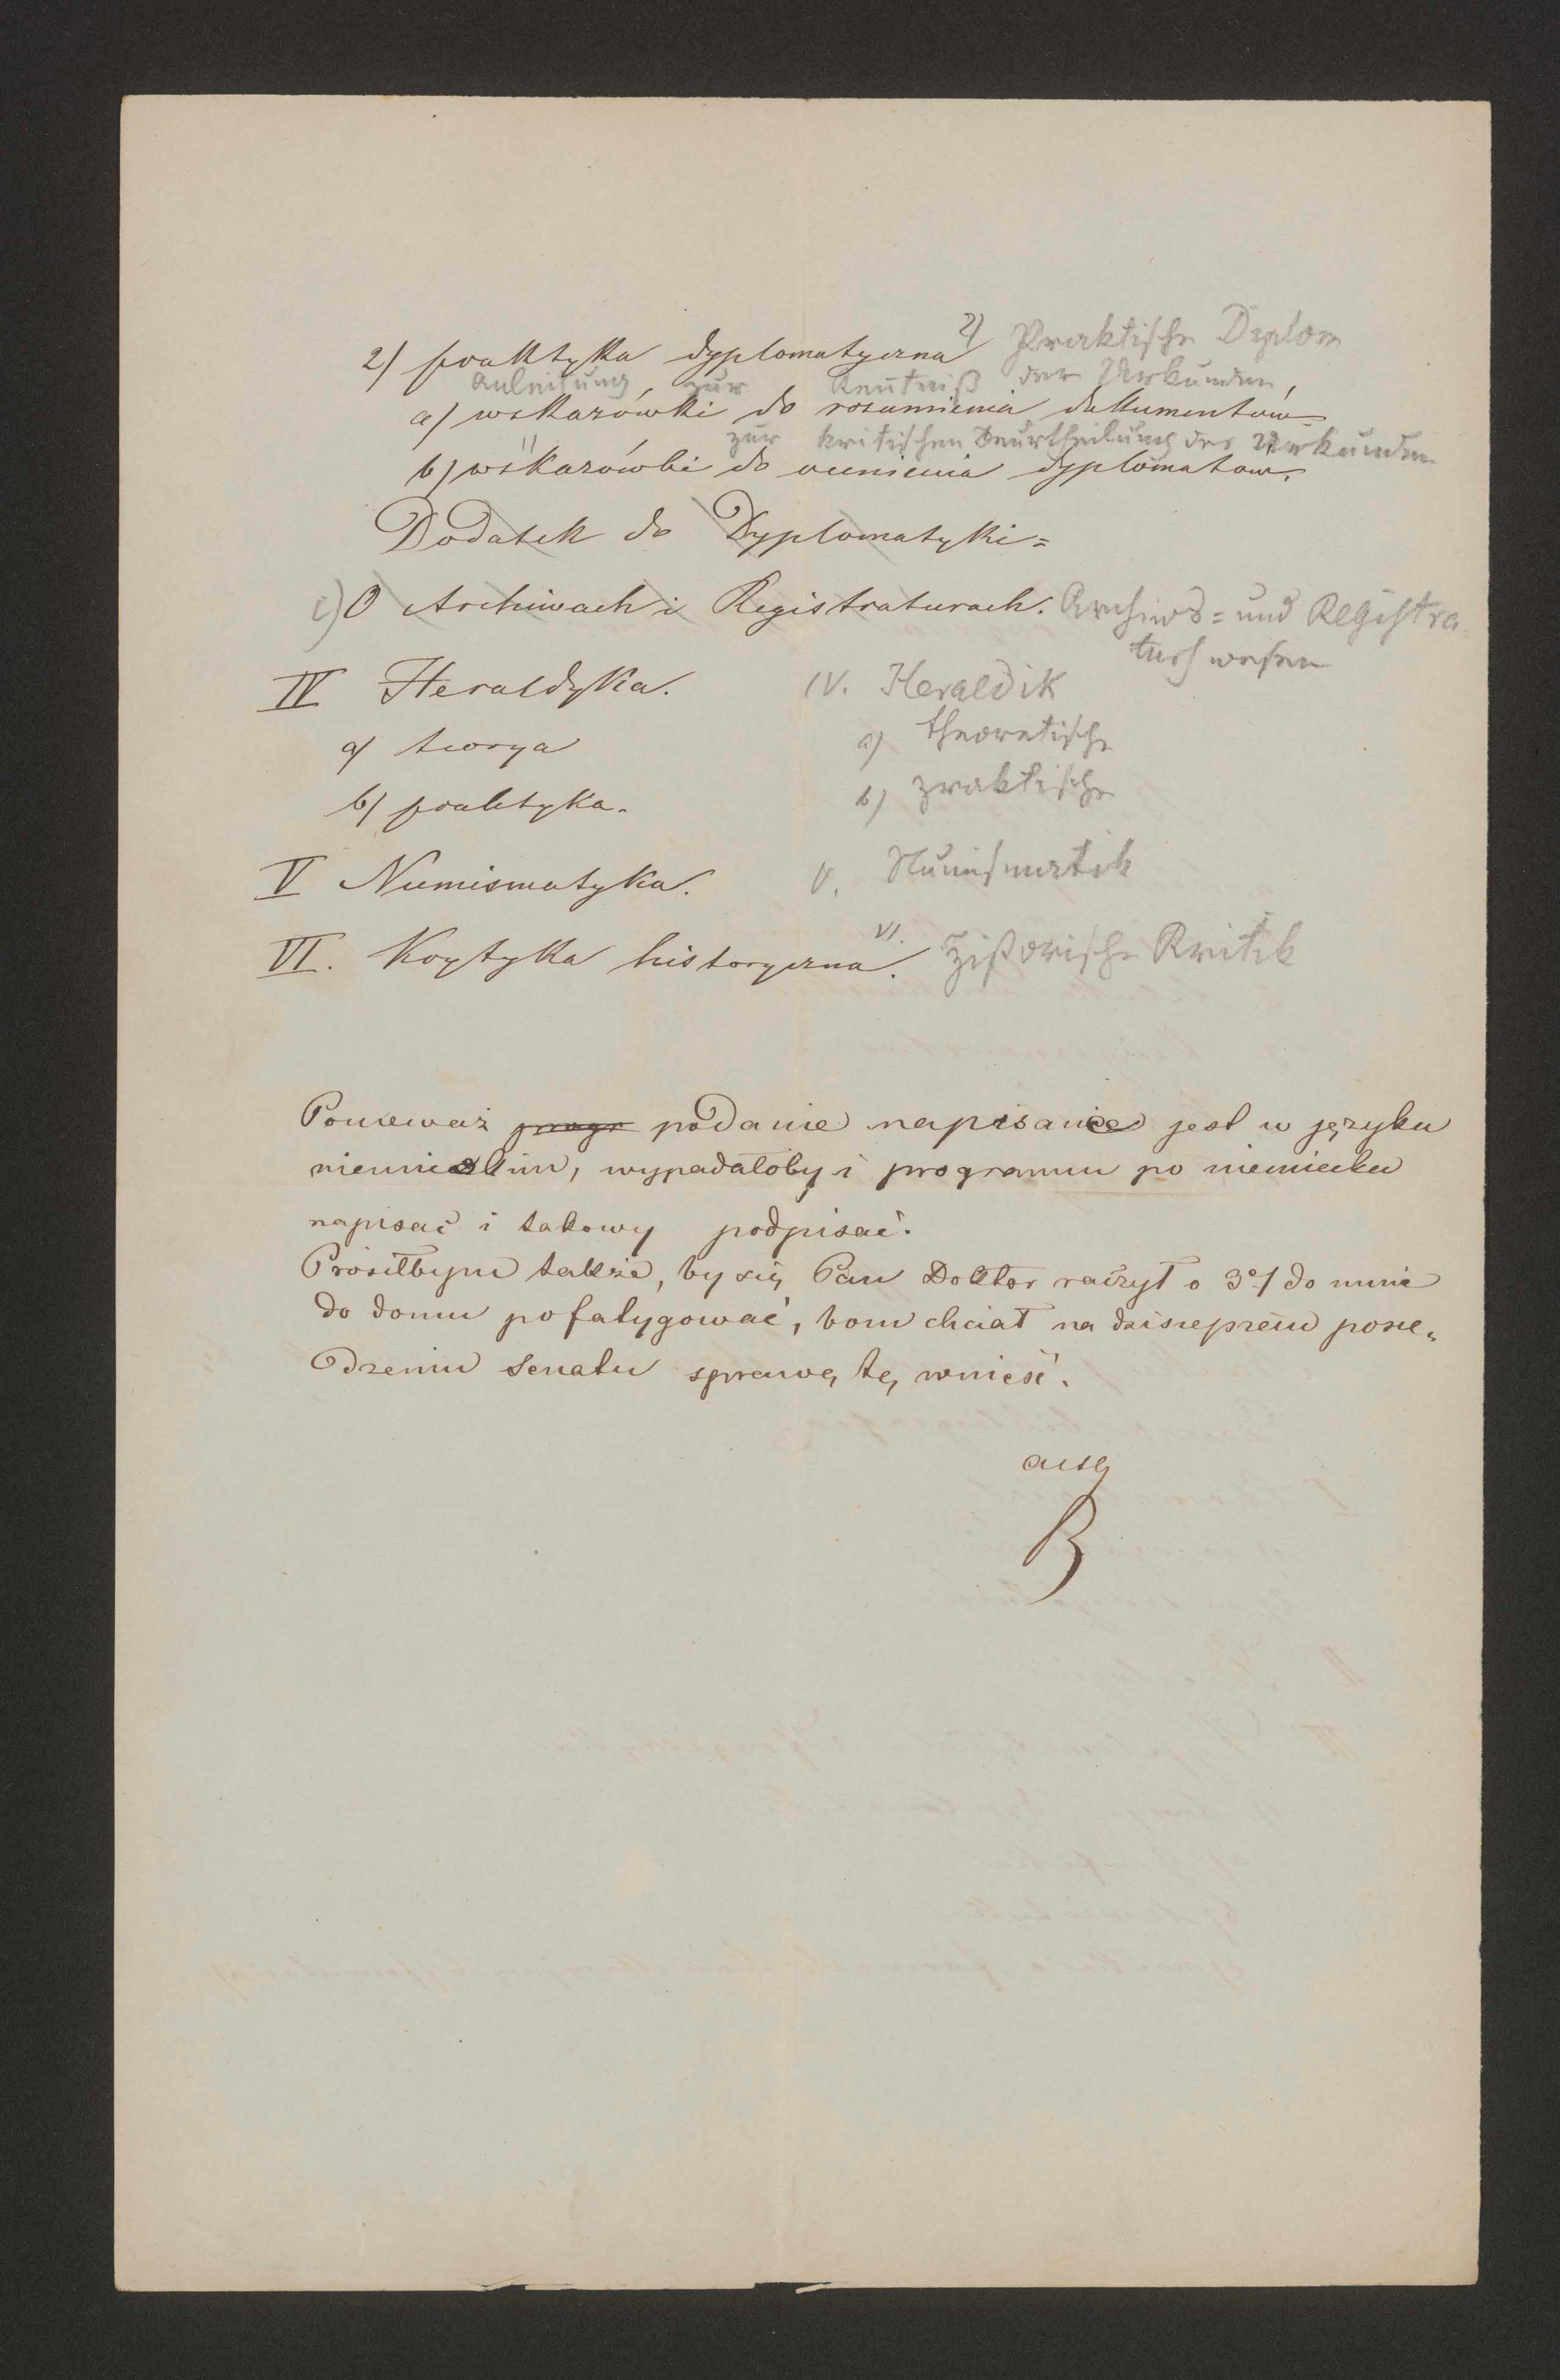 2) praktyka dyplomatyczna 2) Praktische Diplom
Anleitung zur Kentniß der Urkunden,
a) wskazówki do rozumienia dokumentów
" zur kritischen Beurtheilung der Urkunden
b) wskazówki do ocenienia dyplomatow.
Dodatek do Dyplomatyki=
c) O Archiwach i Registraturach. Archivs= und Registra
turswesen
IV Heraldyka. IV. Heraldik
a) teorya a) theoretische
b) praktyka. b) praktische
V Numismatyka. V. Numismatik
VI. Krytyka historyczna. VI. Historische Kritik
Ponieważ progr podanie napisane jest w języku
niemieckim, wypadałoby i programm po niemiecku
napisać i takowy podpisać.
Prosiłbym także, by się Pan Doktor raczył o 3ej do mnie
do domu pofatygować, bom chciał na dzisiejszém posie„
dzeniu Senatu sprawę tę wnieść.
B